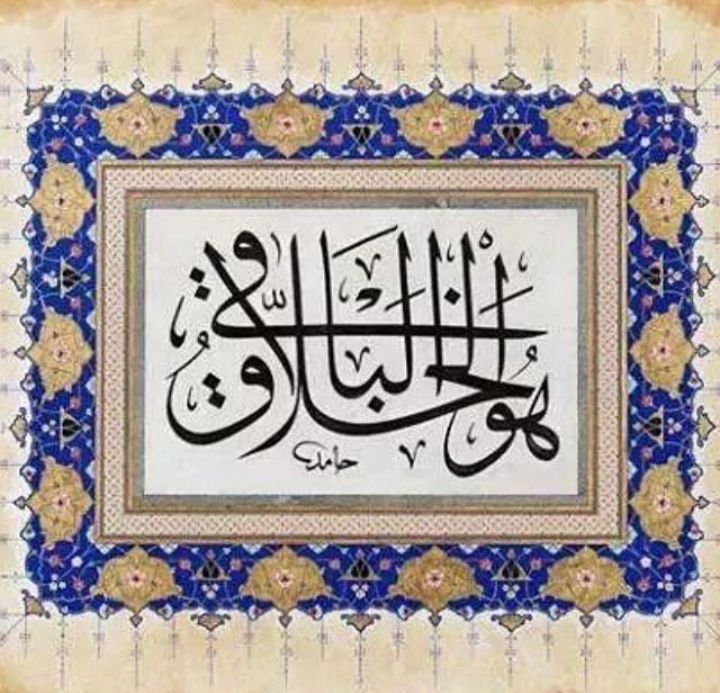 هو الخلاق الباقى
حامد